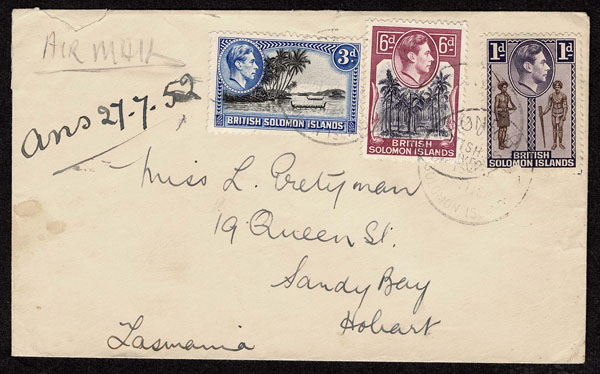 AIR MAIL
ans 27.7.52
3d.
BRITISH SOLOMON ISLANDS
6d. 6d.
BRITISH
SOLOMON ISLANDS
1d. 1d.
BRITISH
SOLOMON ISLANDS
Miss L. Cretyman
19 Queen St.
Sandy Bay
Hobart
Tasmania